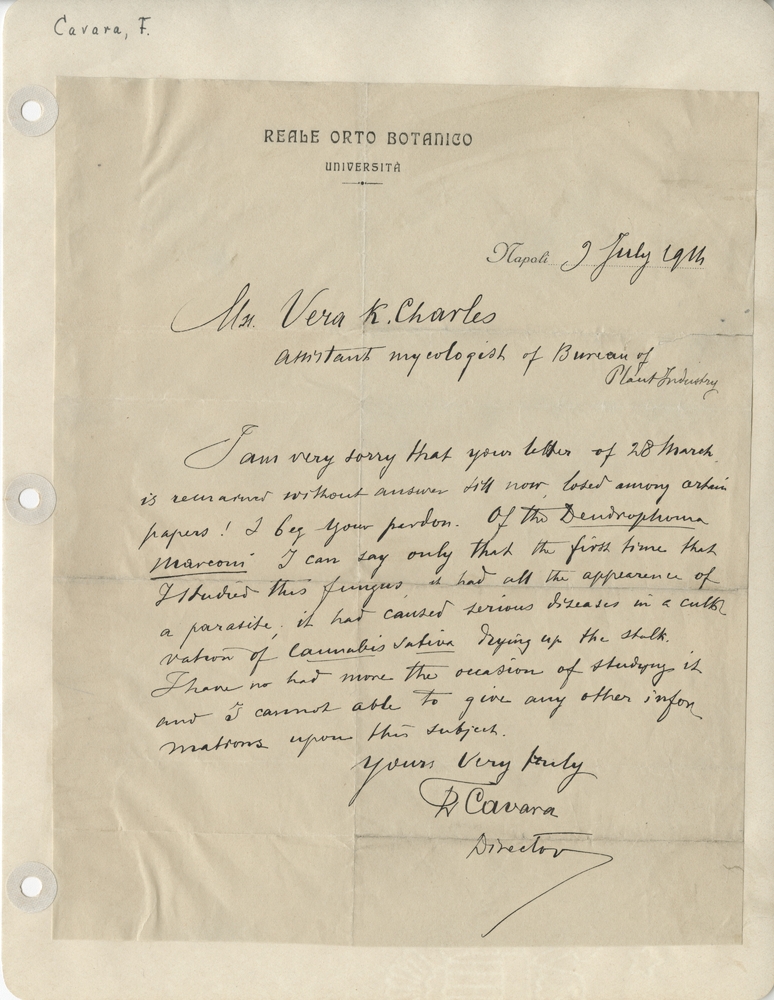 Cavara, F.
REALE ORTO BOTANICO
UNIVERSITÀ
Napoli 9 July 1914
Vera K. Charles
assistant mycologist of Bureau of
Plant Industry
I am very sorry that your letter of 28 March
is remained without answer till now, losed among certain
papers! I beg your pardon. Of the Dendrophoma
Marconi I can say only that the first time that
I studied this fungus it had all the appearence of
a parasite; it had caused serious diseases in a culti
vation of Cannabis sativa drying up the stalk.
I have no had more the occasion of studying it
and I cannot able to give any other infor
mations upon this subject.
yours very truly
Cavara
Director